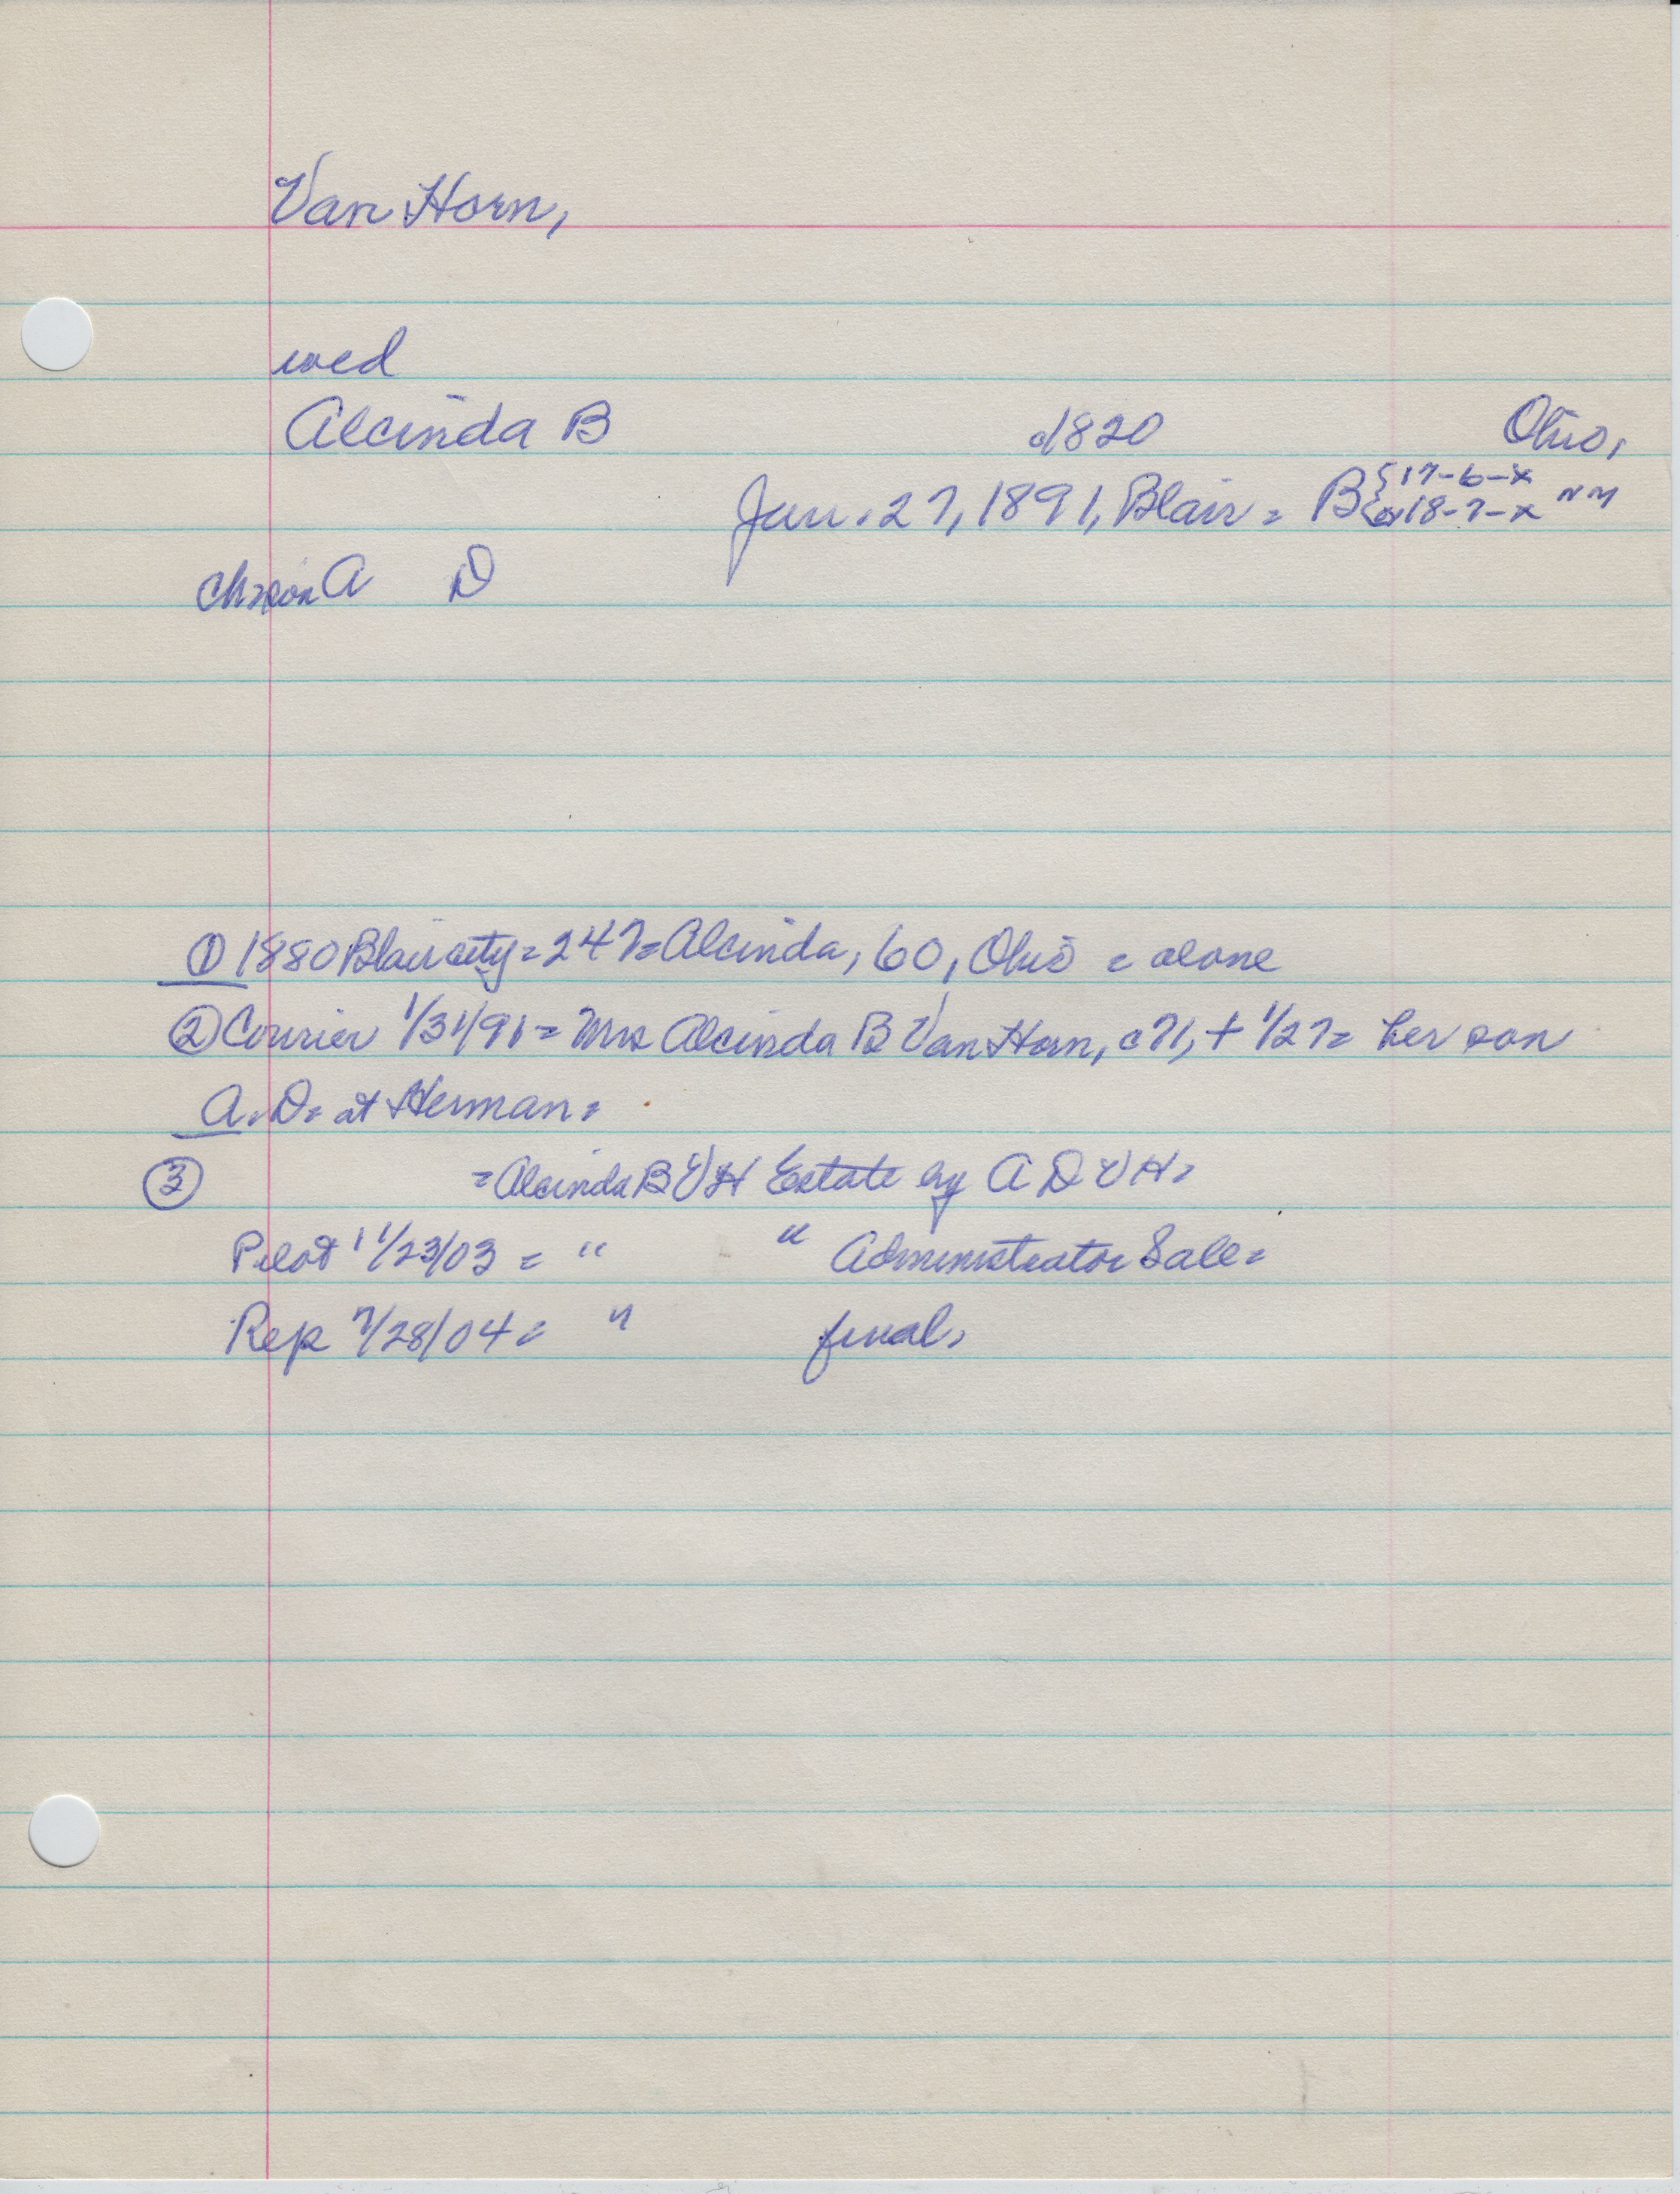 Van Horn,
wed
Alcinda B c1820 Ohio,
Jan. 27, 1891, Blair = B { 17-6-x
or 18-7-x NM
Ch=son A D
① 1880 Blair city = 247 = Alcinda, 60, Ohio = alone
② Courier 1/31/91 = Mrs Alcinda B Van Horn, c71, + 1/27 = her son
A. D. = at Herman =
③ = Alcinda B V H Estate by A D V H =
Pilot 11/23/03 = " " Administrator Sale =
Rep 7/28/04 = " final,